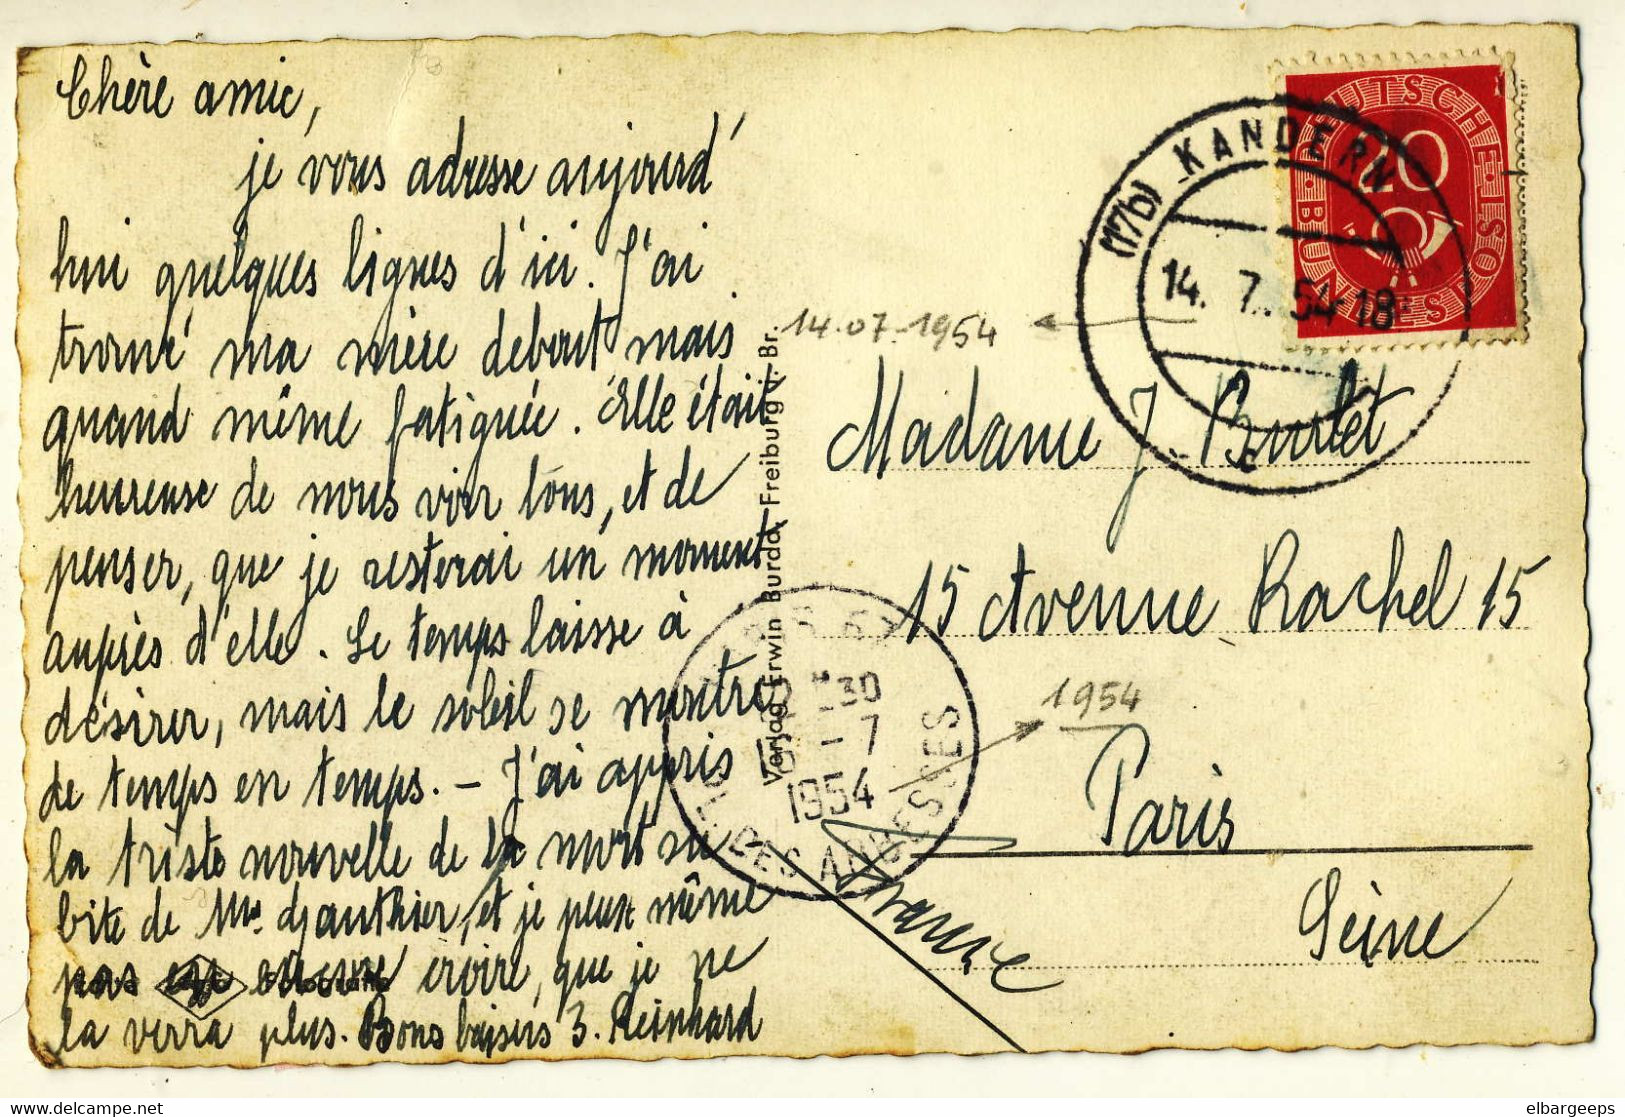 Chère amie,
je vous adresse aujourd'
hui quelques lignes d'ici. J'ai
trouvé ma mère debout, mais
quand même fatiguée. Elle était
heureuse de nous voir tous, et de
penser, que je resterai un moment
auprès d'elle. Le temps laisse à
désirer, mais le soleil se montre
de temps en temps. – J'ai appris
la triste nouvelle de la mort su
bite de Mme Gauthier, et je peux même
pas encore croire, que je ne
la verra plus. Bons baisers 3. Reinhard
Verlag Erwin Burda, Freiburg i. Br.
(17b) KANDERN
14. 7. 54-18
E
DEUTSCHE BUNDESPOST
20
14.07.1954
Madame J. Burlet
15 Avenue Rachel 15
1954
Paris
Seine
France
30
- 7
1954
DES ABBESSES
elbargeeps